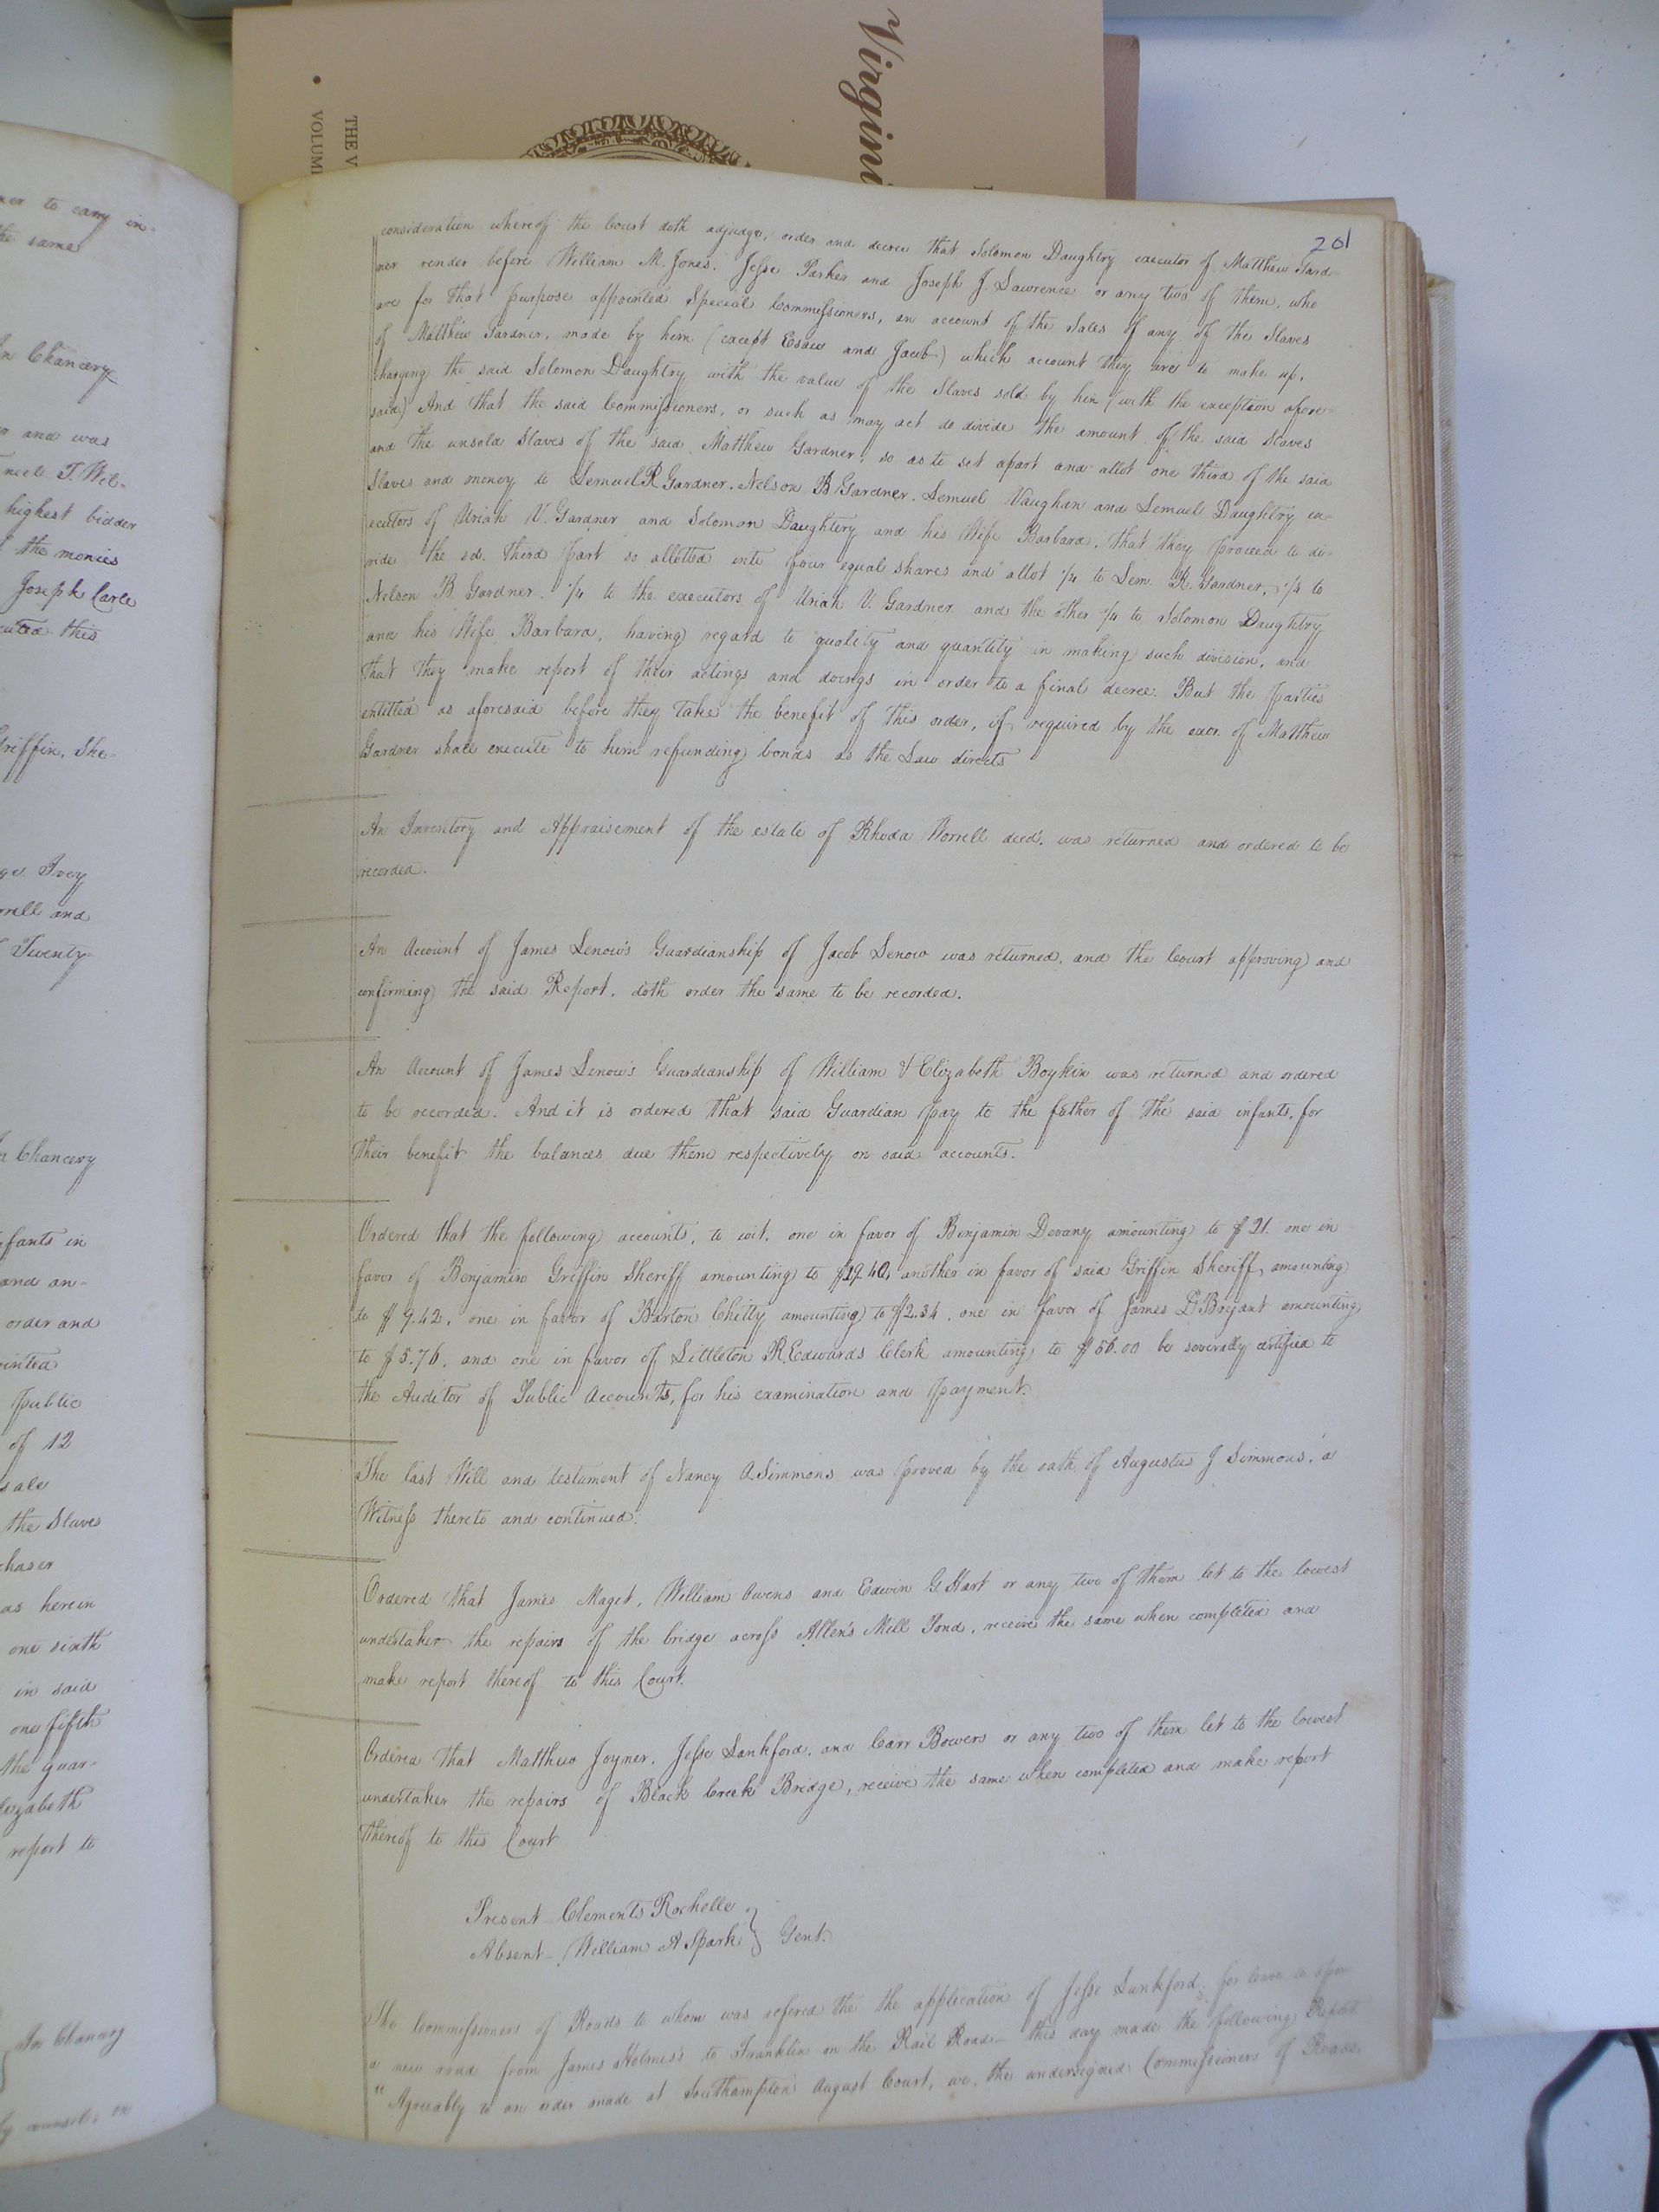 Virgini
THE V
VOLUM
ner to carry in-
the same
In Chancery
and was
T. Wil-
highest bidder
the monies
Joseph Carle
this
Griffin, She-
Ivey
and
Twenty-
Chancery
fants in
and an-
order and
public
of 12
sale
the Slaves
chaser
as herein
one sixth
in said
one fifth
the guar-
lizabeth
report to
In Chancery
by counsel, on
201
consideration whereof the Court doth adjudge, order and decree that Solomon Daughtry executor of Matthew Gard-
ner render before William M. Jones, Jesse Parker and Joseph J. Lawrence or any two of them, who
are for that purpose appointed Special Commissioners, an account of the Sales of any of the Slaves
of Matthew Gardner, made by him (except Esau and Jacob) which account they are to make up,
charging the said Solomon Daughtry with the value of the Slaves sold by him (with the exception afore-
said) And that the said Commissioners, or such as may act do divide the amount of the said Slaves
and the unsold Slaves of the said Matthew Gardner, so as to set apart and allot one third of the said
Slaves and money to Lemuel R Gardner, Nelson B Gardner, Lemuel Vaughan and Lemuel Daughtry ex-
ecutors of Uriah V. Gardner and Solomon Daughtery and his Wife Barbara, that they proceed to di-
vide the sd. third part so allotted into four equal shares and allot 1/4 to Lem. R. Gardner, 1/4 to
Nelson B Gardner. 1/4 to the executors of Uriah V. Gardner and the other 1/4 to Solomon Daughtry
and his Wife Barbara, having regard to quality and quantity in making such division, and
that they make report of their actings and doings in order to a final decree. But the parties
entitled as aforesaid before they take the benefit of this order, if required by the exor. of Matthew
Gardner shall execute to him refunding bonds as the Law directs
An Inventory and Appraisement of the estate of Rhoda Worrell decd. was returned and ordered to be
recorded.
An Account of James Lenow's Guardianship of Jacob Lenow was returned, and the Court approving and
confirming the said Report, doth order the same to be recorded.
An Account of James Lenow's Guardianship of William & Elizabeth Boykin was returned and ordered
to be recorded. And it is ordered that said Guardian pay to the father of the said infants, for
their benefit the balances due them respectively on said accounts.
Ordered that the following accounts, to wit, one in favor of Benjamin Devany amounting to $21. one in
favor of Benjamin Griffin Sheriff amounting to $19.40, another in favor of said Griffin Sheriff, amounting
to $9.42, one in favor of Barton Chitty amounting to $2.34, one in favor of James D Bryant amounting
to $5.76, and one in favor of Littleton R. Edwards Clerk amounting to $56.00 be severally certified to
the Auditor of Public Accounts, for his examination and payment.
The last Will and testament of Nancy A. Simmons was proved by the oath of Augustus J Simmons, a
Witness thereto and continued.
Ordered that James Maget, William Owens and Edwin G. Hart or any two of them let to the lowest
undertaker the repairs of the bridge across Allen's Mill Pond, receive the same when completed and
make report thereof to this Court.
Ordered that Matthew Joyner, Jesse Lankford, and Carr Bowers or any two of them let to the lowest
undertaker the repairs of Black Creek Bridge, receive the same when completed and make report
thereof to this Court
Present - Clements Rochelle
Absent - William A Spark } Gent.
The Commissioners of Roads to whom was refered the the application of Jesse Lankford, for leave to open
a new road from James Holmes's to Franklin on the Rail Road - this day made the following Report
"Agreeably to an order made at Southampton August Court, we, the undersigned Commissioners of Roads